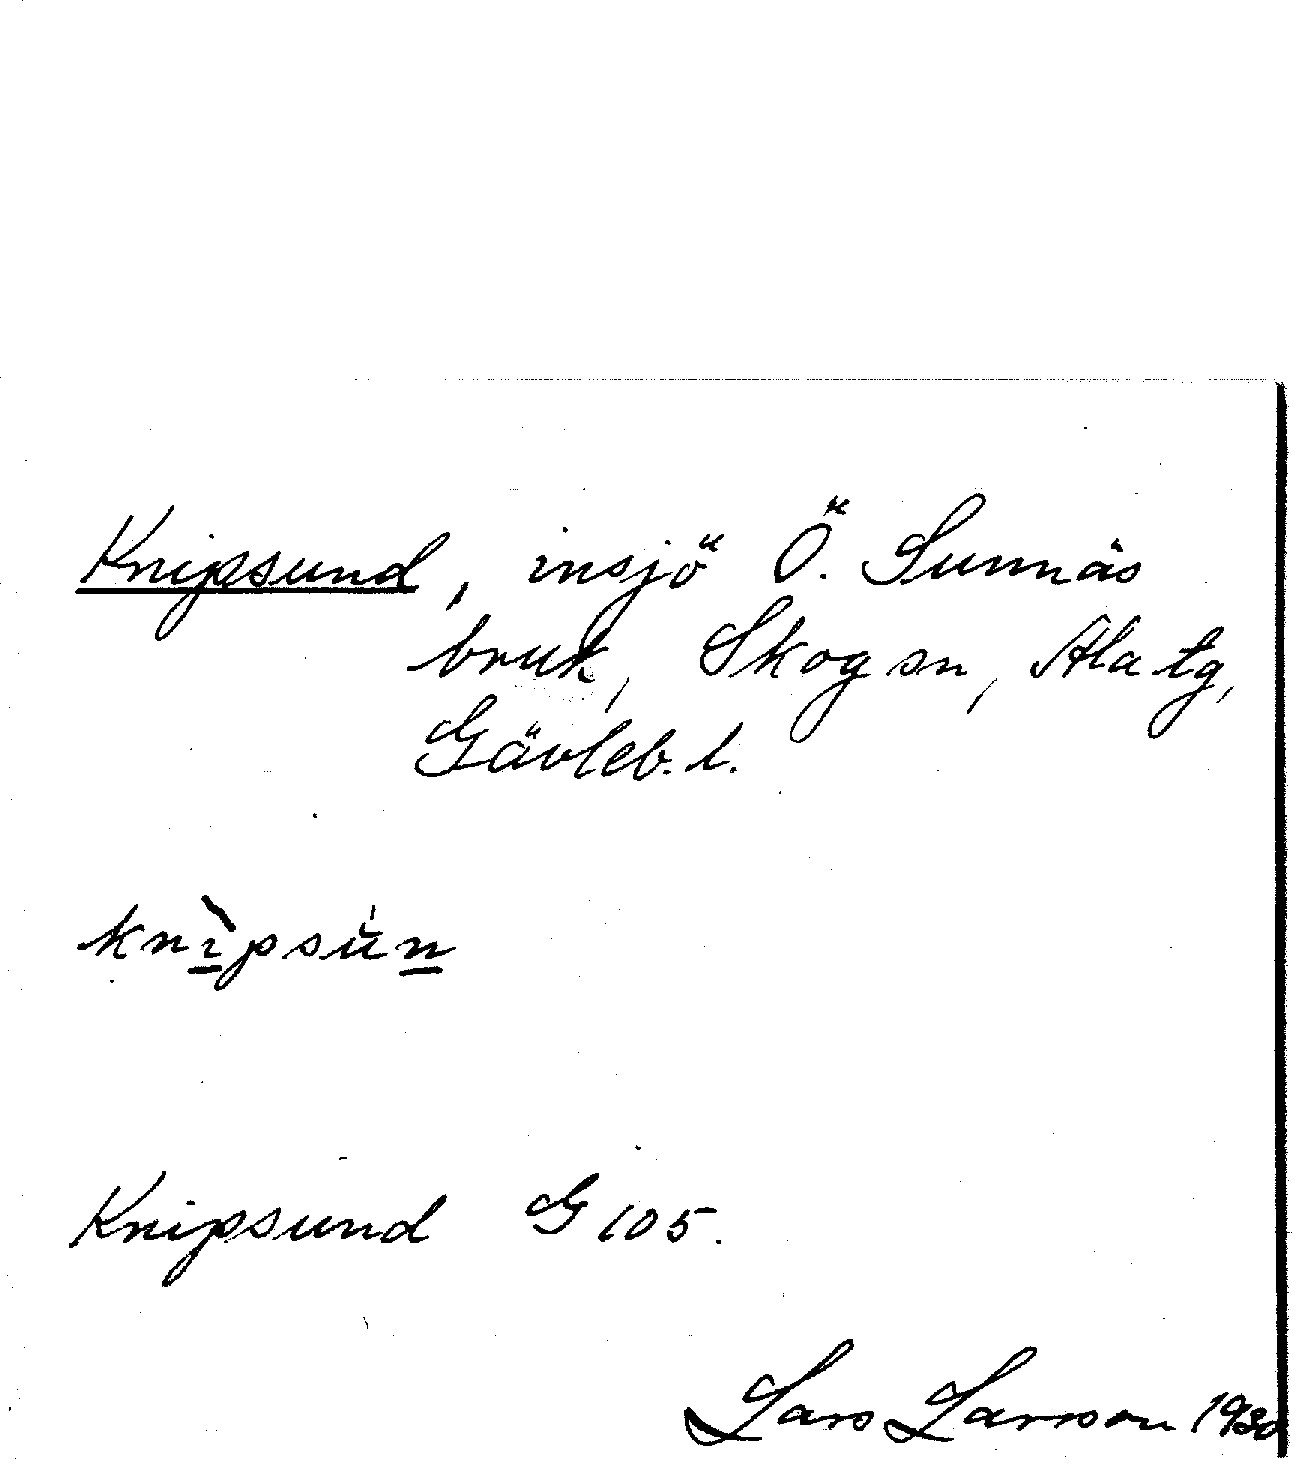 Knipsund, insjö Ö. Sunnäs
bruk, Skog sn, Ala tg,
Gävleb. l.
knìpsún
Knipsund G 105.
Lars Larsson 1930